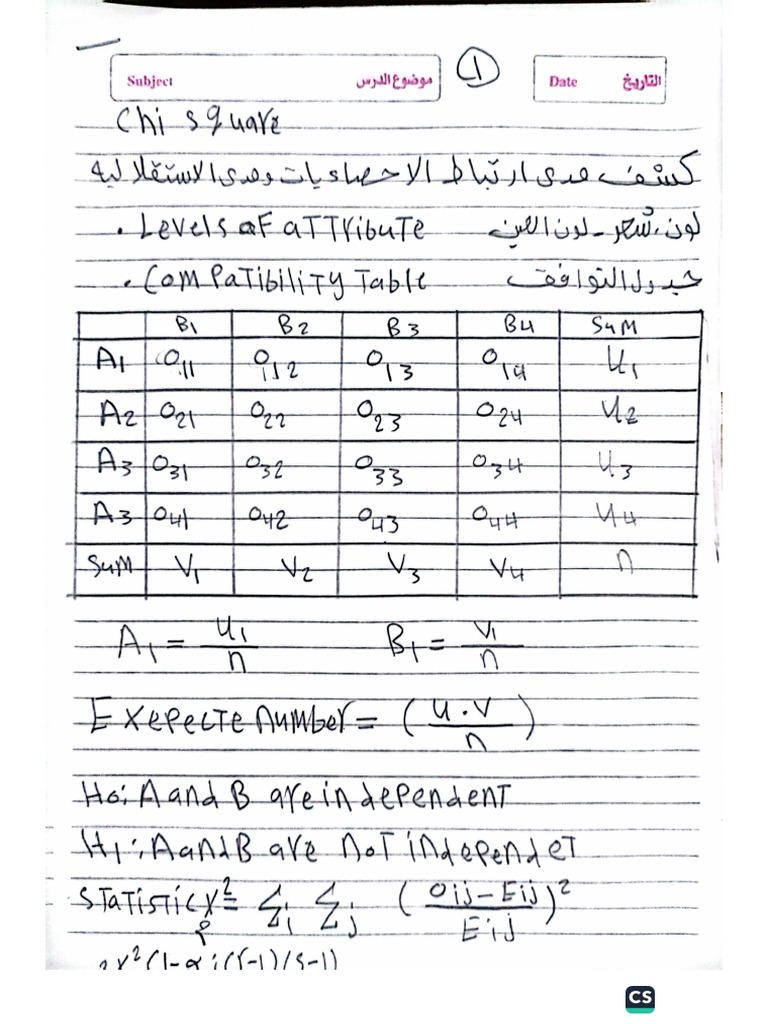 Subject موضوع الدرس 1 Date التاريخ
Chi square
كشف مدى ارتباط الاحصاءيات ومدى الاستقلالية
. Levels of aTTribute لون شعر - لون العين
. ComPatibility Table جدول التوافق
B1 B2 B3 B4 SuM
A1 O11 O112 O13 O14 U1
A2 O21 O22 O23 O24 U2
A3 O31 O32 O33 O34 U3
A3 O41 O42 O43 O44 U4
SuM V1 V2 V3 V4 n
A1 = u1/n B1 = v1/n
ExepecTe number = (u.v/n)
Ho: A and B are independenT
H1: A and B are noT independeT
STaTisTic χ² = Σi Σj (Oij-Eij/Eij)²